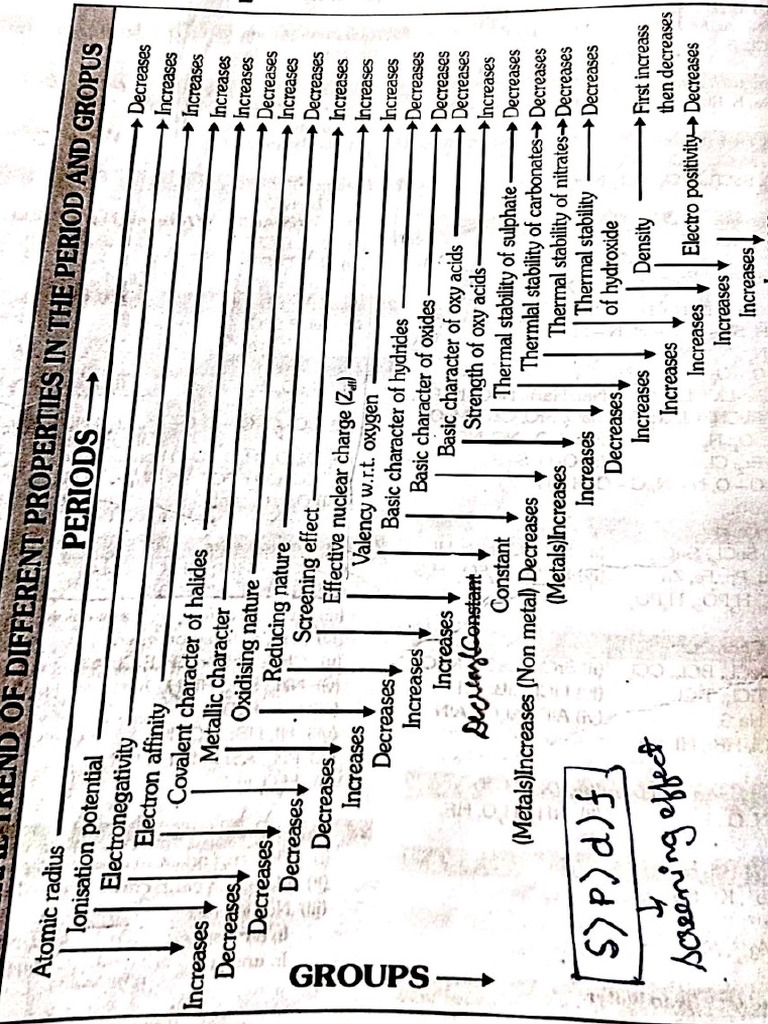 THE TREND OF DIFFERENT PROPERTIES IN THE PERIOD AND GROPUS
PERIODS
Atomic radius Decreases
Ionisation potential Increases
Electronegativity Increases
Electron affinity Increases
Covalent character of halides Increases
Metallic character Decreases
Oxidising nature Increases
Reducing nature Decreases
Screening effect Increases
Effective nuclear charge (Zeff) Increases
Valency w.r.t. oxygen Increases
Basic character of hydrides Decreases
Basic character of oxides Decreases
Basic character of oxy acids Decreases
Strength of oxy acids Increases
Thermal stability of sulphate Decreases
Thermlal stability of carbonates Decreases
Thermal stability of nitrates Decreases
Thermal stability Decreases
of hydroxide
Density First increass
then decreases
Electro positivity Decreases
Increases
Decreases
Decreases
Decreases
Decreases
Increases
Decreases
Increases
Increases
Constant
Constant
(Metals)Increases (Non metal) Decreases
(Metals)Increases
Increases
Decreases
Increases
Increases
Increases
Increases
Increases
GROUPS
S>p>d>f
screening effect